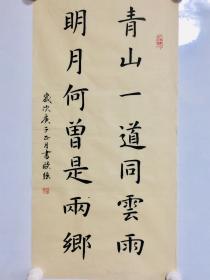 青山一道同雲雨
明月何曾是兩鄉
歲次庚子正月書